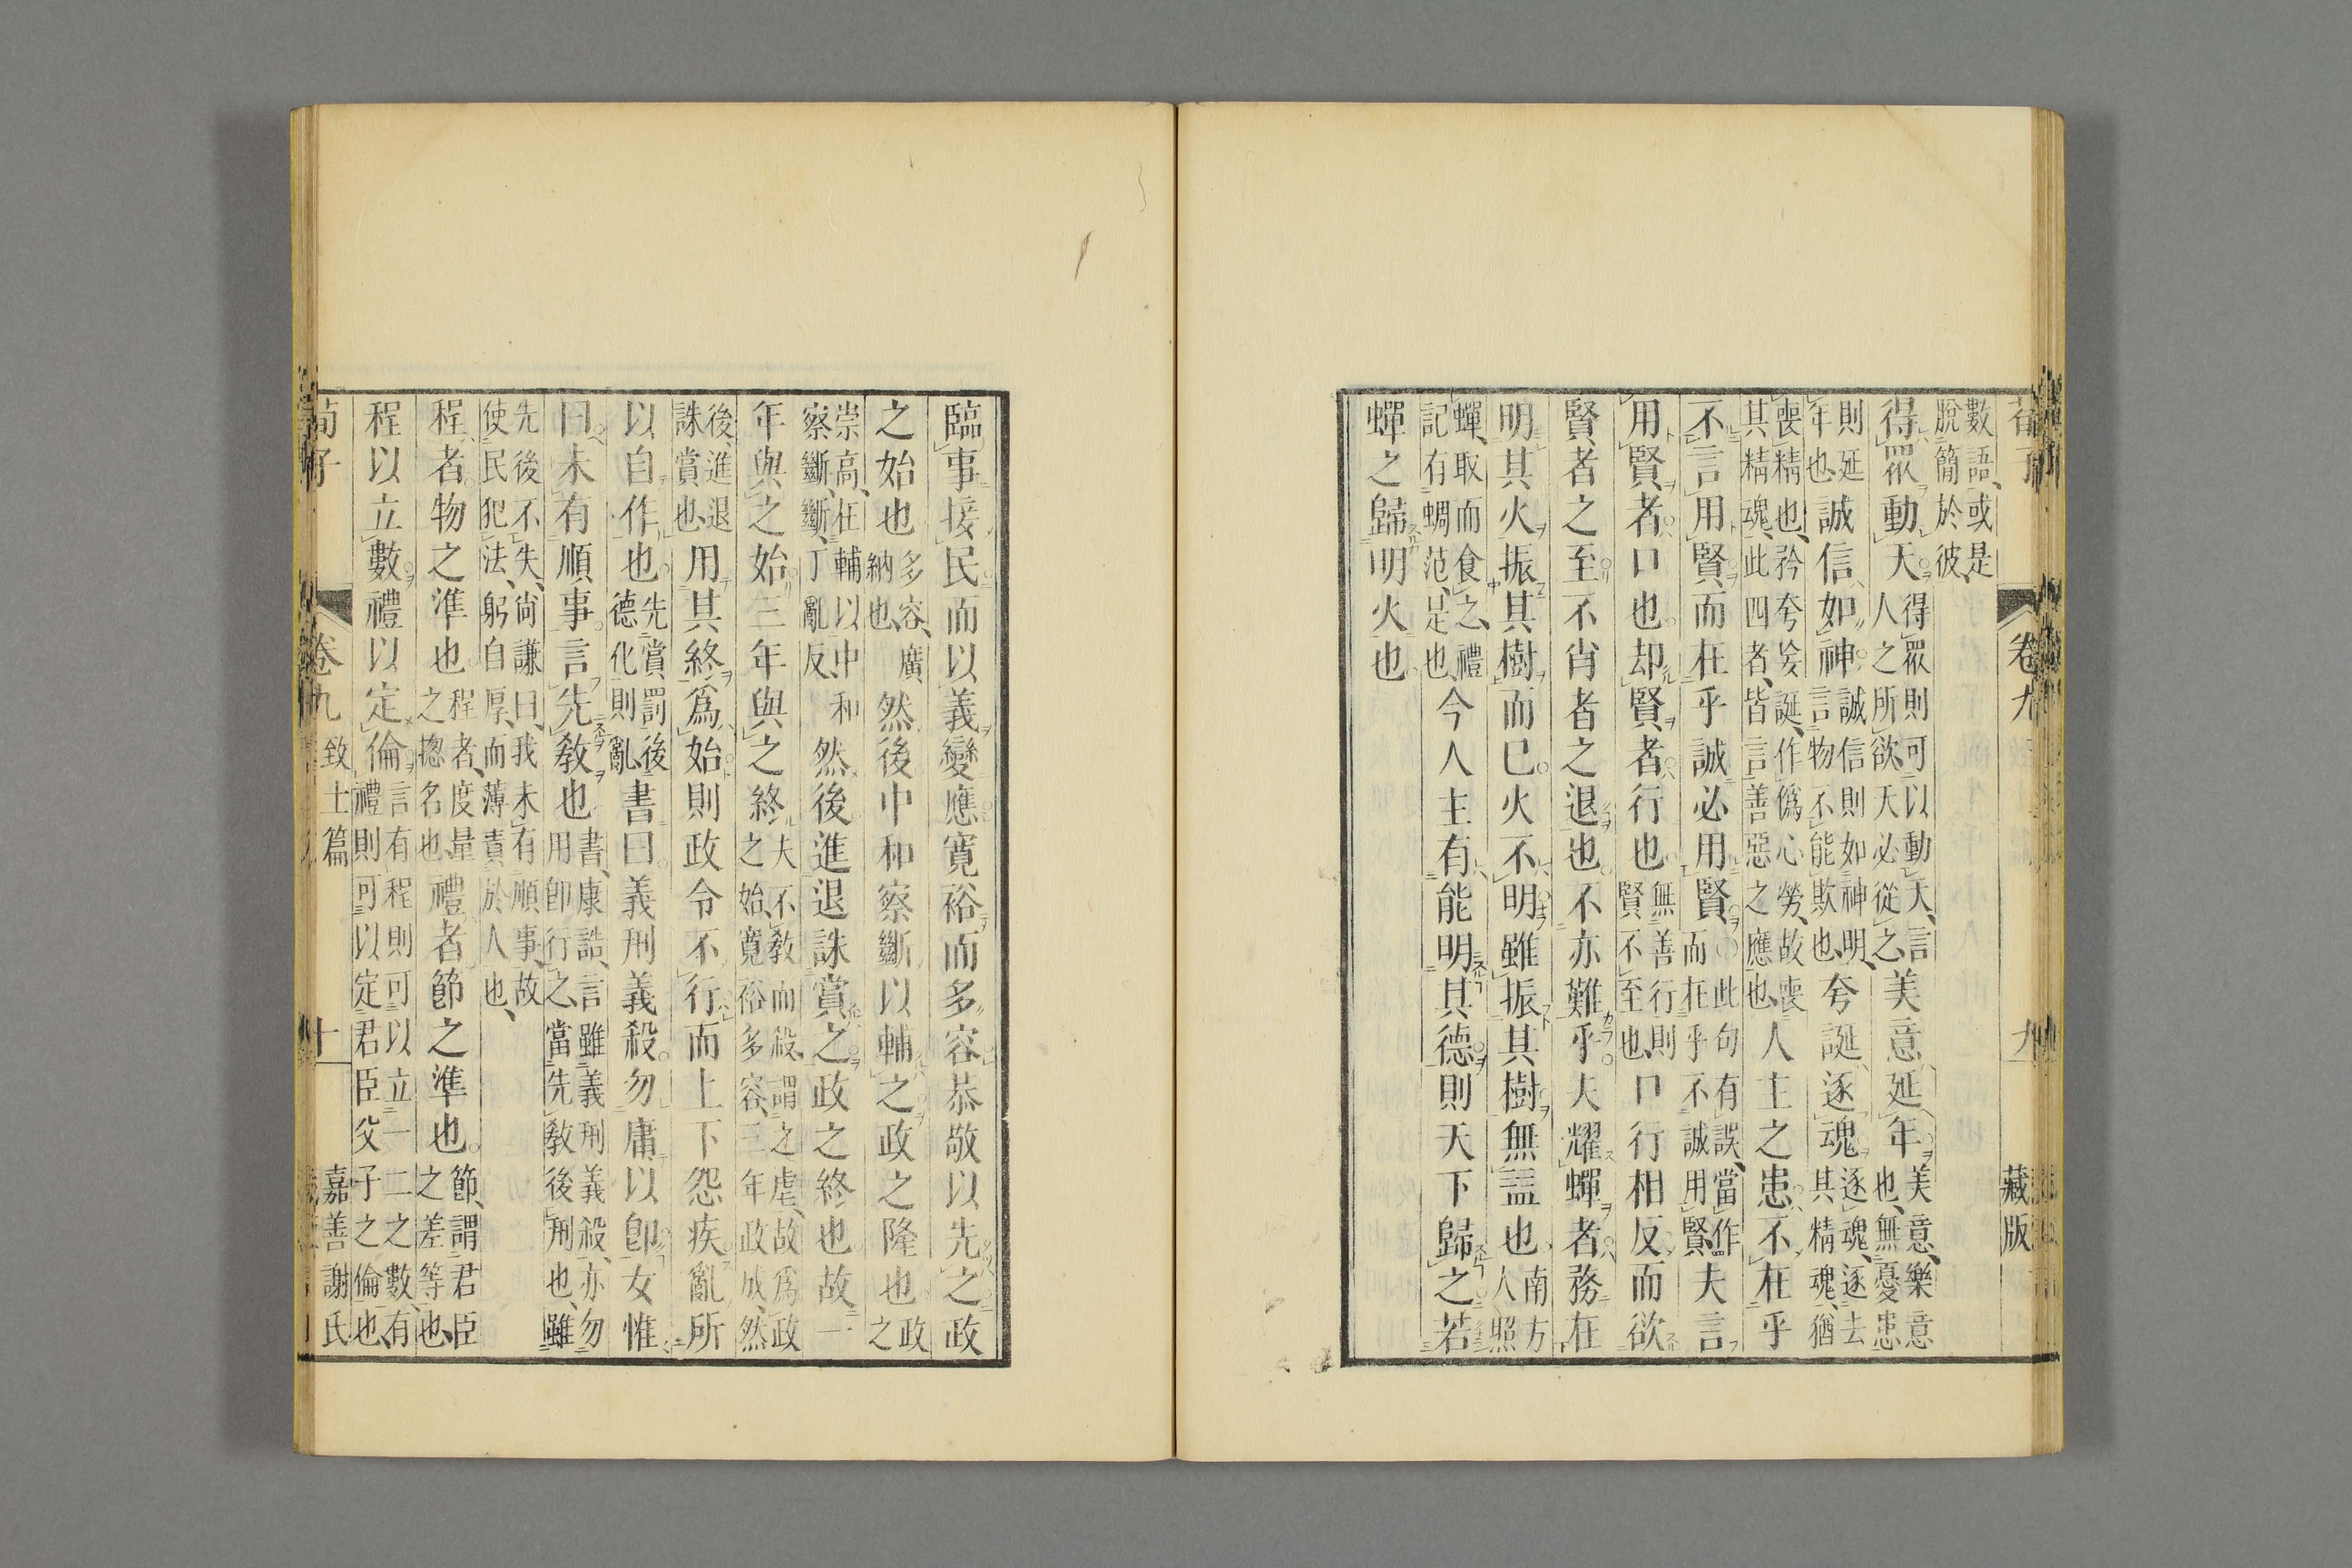 荀子 卷九 九 藏版
數語、或是
脫簡於彼、
得眾動天、得眾則可以動天、言人之所欲、天必從之、美意延年、美意、樂意也、無憂患
則延年也、誠信如神、誠信則如神明、言物不能欺也、夸誕逐魂、逐魂、逐去其精魂、猶
喪精也、矜夸妄誕、作僞心勞、故喪其精魂、此四者、皆言善惡之應也、人主之患、不在乎
不言用賢、而在乎誠必用賢、此句有誤、當作而在乎不誠用賢、夫言
用賢者口也、却賢者行也、無善行則賢不至也、口行相反、而欲
賢者之至、不肖者之退也、不亦難乎、夫耀蟬者、務在
明其火、振其樹而已、火不明、雖振其樹、無益也、南方人照
蟬、取而食之、禮記有蜩范、是也、今人主有能明其德、則天下歸之、若
蟬之歸明火也
臨事接民、而以義變應、寬裕而多容、恭敬以先之、政
之始也、多容、廣納也、然後中和察斷以輔之、政之隆也、政之
崇高、在輔以中和察斷、斷、丁亂反、然後進退誅賞之、政之終也、故一
年與之始、三年與之終、夫不敎而殺、謂之虐、故爲政之始、寬裕多容、三年政成、然
後、進退誅賞也、用其終爲始、則政令不行、而上下怨疾、亂所
以自作也、先賞罰後德化則亂、書曰、義刑義殺、勿庸以卽、女惟
曰、未有順事、言先敎也、書、康誥、言雖義刑義殺、亦勿用卽行之、當先敎後刑也、雖
先後不失、尙謙曰、我未有順事、故使民犯法、躬自厚、而薄責於人也、
程者、物之準也、程者、度量之摠名也、禮者、節之準也、節、謂君臣之差等也、
程以立數、禮以定倫、言有程則可以立一二之數、有禮則可以定君臣父子之倫也、
荀子 卷九 致士篇 十 嘉善謝氏